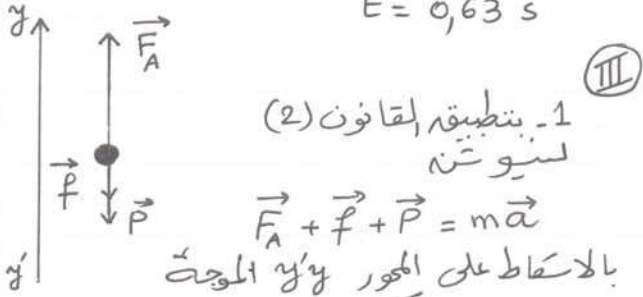 t = 0,63 s
III
1- بتطبيق القانون (2)
لنيوتن
y
F_A
f
P
y'
F_A + f + P = ma
بالاسقاط على المحور y'y الموجه